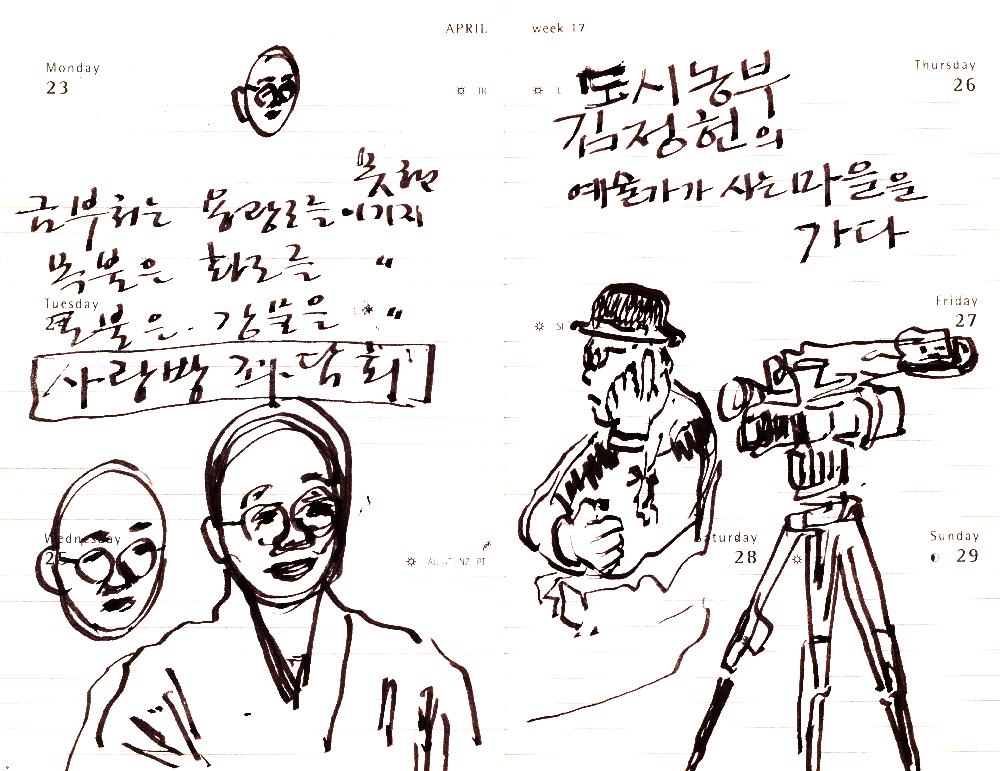 APRIL
Monday
23
금부처는 용광로를 이기지
목불은 화로를 〃
Tuesday
토불은 강물을 〃
사랑방 좌담회
Wednesday
25
week 17
Thursday
26
도시농부
김정헌의
예술가가 사는 마을을
가다
Friday
27
Saturday
28
Sunday
29